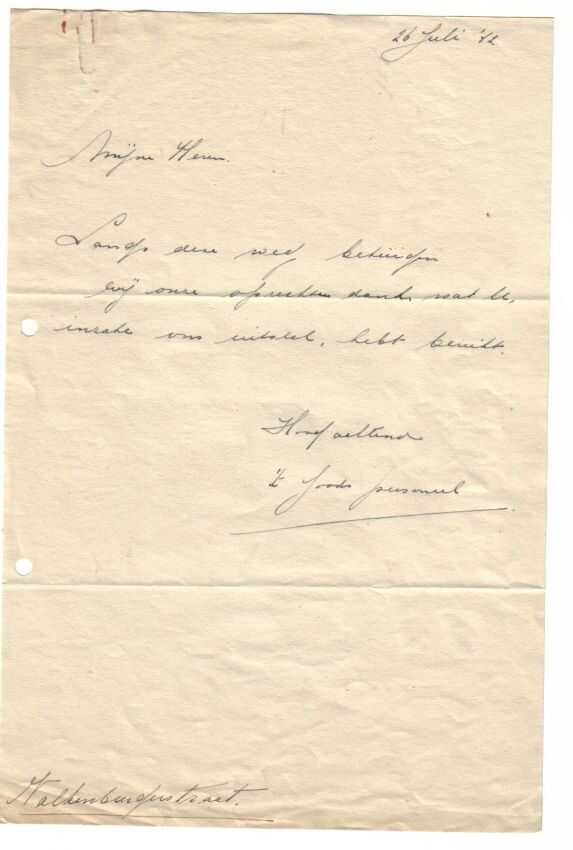 26 Juli '42
Mijne Heren.
Langs deze weg betuigen
wij onze oprechten dank, wat U,
inzake ons uitstel, hebt bereikt.
Hoogachtend
't Joods personeel
Valkenburgerstraat.